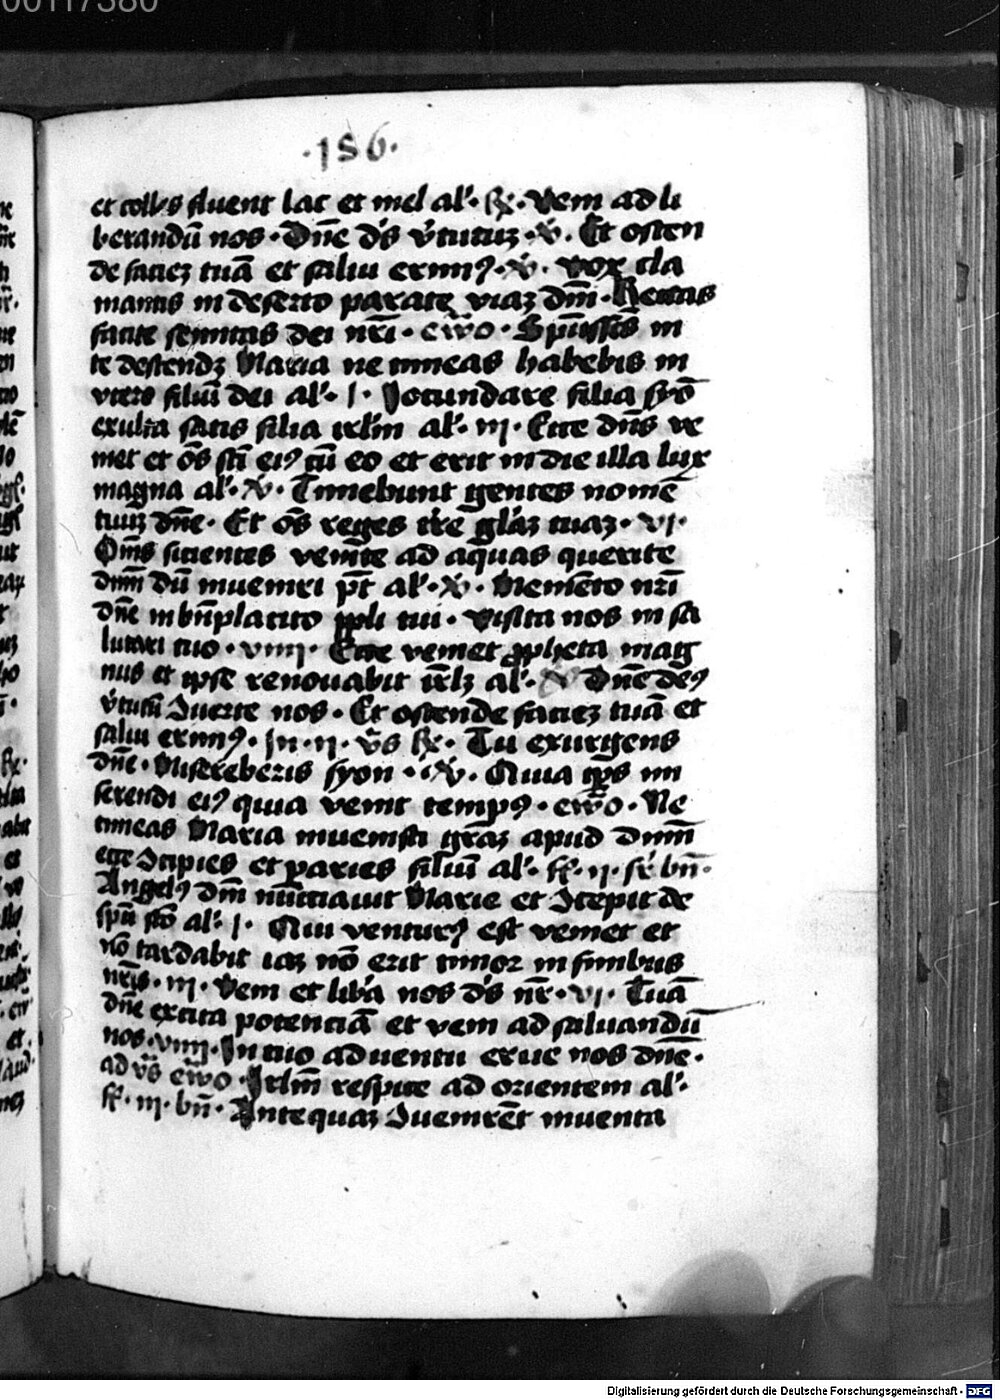 00117380
·186·
et colles fluent lac et mel al'· R̷· Veni ad li
berandū nos · Dñe d's v'tutuz · v̓· Et osten
de faciez tuā et salui erimꝰ· v̓· vox cla
mantis in deserto parate viaz dm̄· Rectas
facite semitas dei nr̄i · ew̄o · Spūssc̄s in
te descendz Maria ne timeas habebis in
vtero filiū dei al'· j· Jocundare filia syō
exulta satis filia irl̄m al'· iij· Ecce dn̄s ve
niet et ōs sc̄i eiꝰ cū eo et erit in die illa lux
magna al'· v̓· Timebunt gentes nomē
tuuz dn̄e · Et ōs reges tr̄e gl'az tuaz · vj·
Om̄s sicientes venite ad aquas querite
dnm̄ dū inueniri pt̄ al'· v̓· Memēto nr̄i
dn̄e in bn̄placito ppli tui · visita nos in sa
lutari tuo · viiij· Ecce veniet propheta mag
nus et ipse renouabit ir̄lz al'· v̓ Dn̄e deꝰ
v'tutū Ↄuerte nos · Et ostende faciez tuā et
salui erimꝰ · Jn · ij· v̄s R̷· Tu exurgens
dn̄e · Misereberis syon · v̓· Quia tp̄s mi
serendi eiꝰ quia venit tempꝰ · ew̄o · Ne
timeas Maria inuenisti gr̄az apud dnm̄
ecce Ↄcipies et paries filiū al'· ff· ij· fē bn̄·
Angelꝰ dm̄ nūtiauit Marie et Ↄcepit de
spū sc̄o al'· j· Qui venturꝰ est veniet et
nō tardabit iaz nō erit timor in finibus
nr̄is · iij· Veni et lib'a nos d's nr̄ · vj· Tuā
dn̄e excita potenciā et veni ad saluandū
nos · viiij· Jn tuo aduentu erue nos dn̄e ·
ad v̄s ew̄o · Jrl̄m respice ad orientem al'·
ff· iij· bn̄· Antequaz Ↄuenirēt inuenta
Digitalisierung gefördert durch die Deutsche Forschungsgemeinschaft · DFG